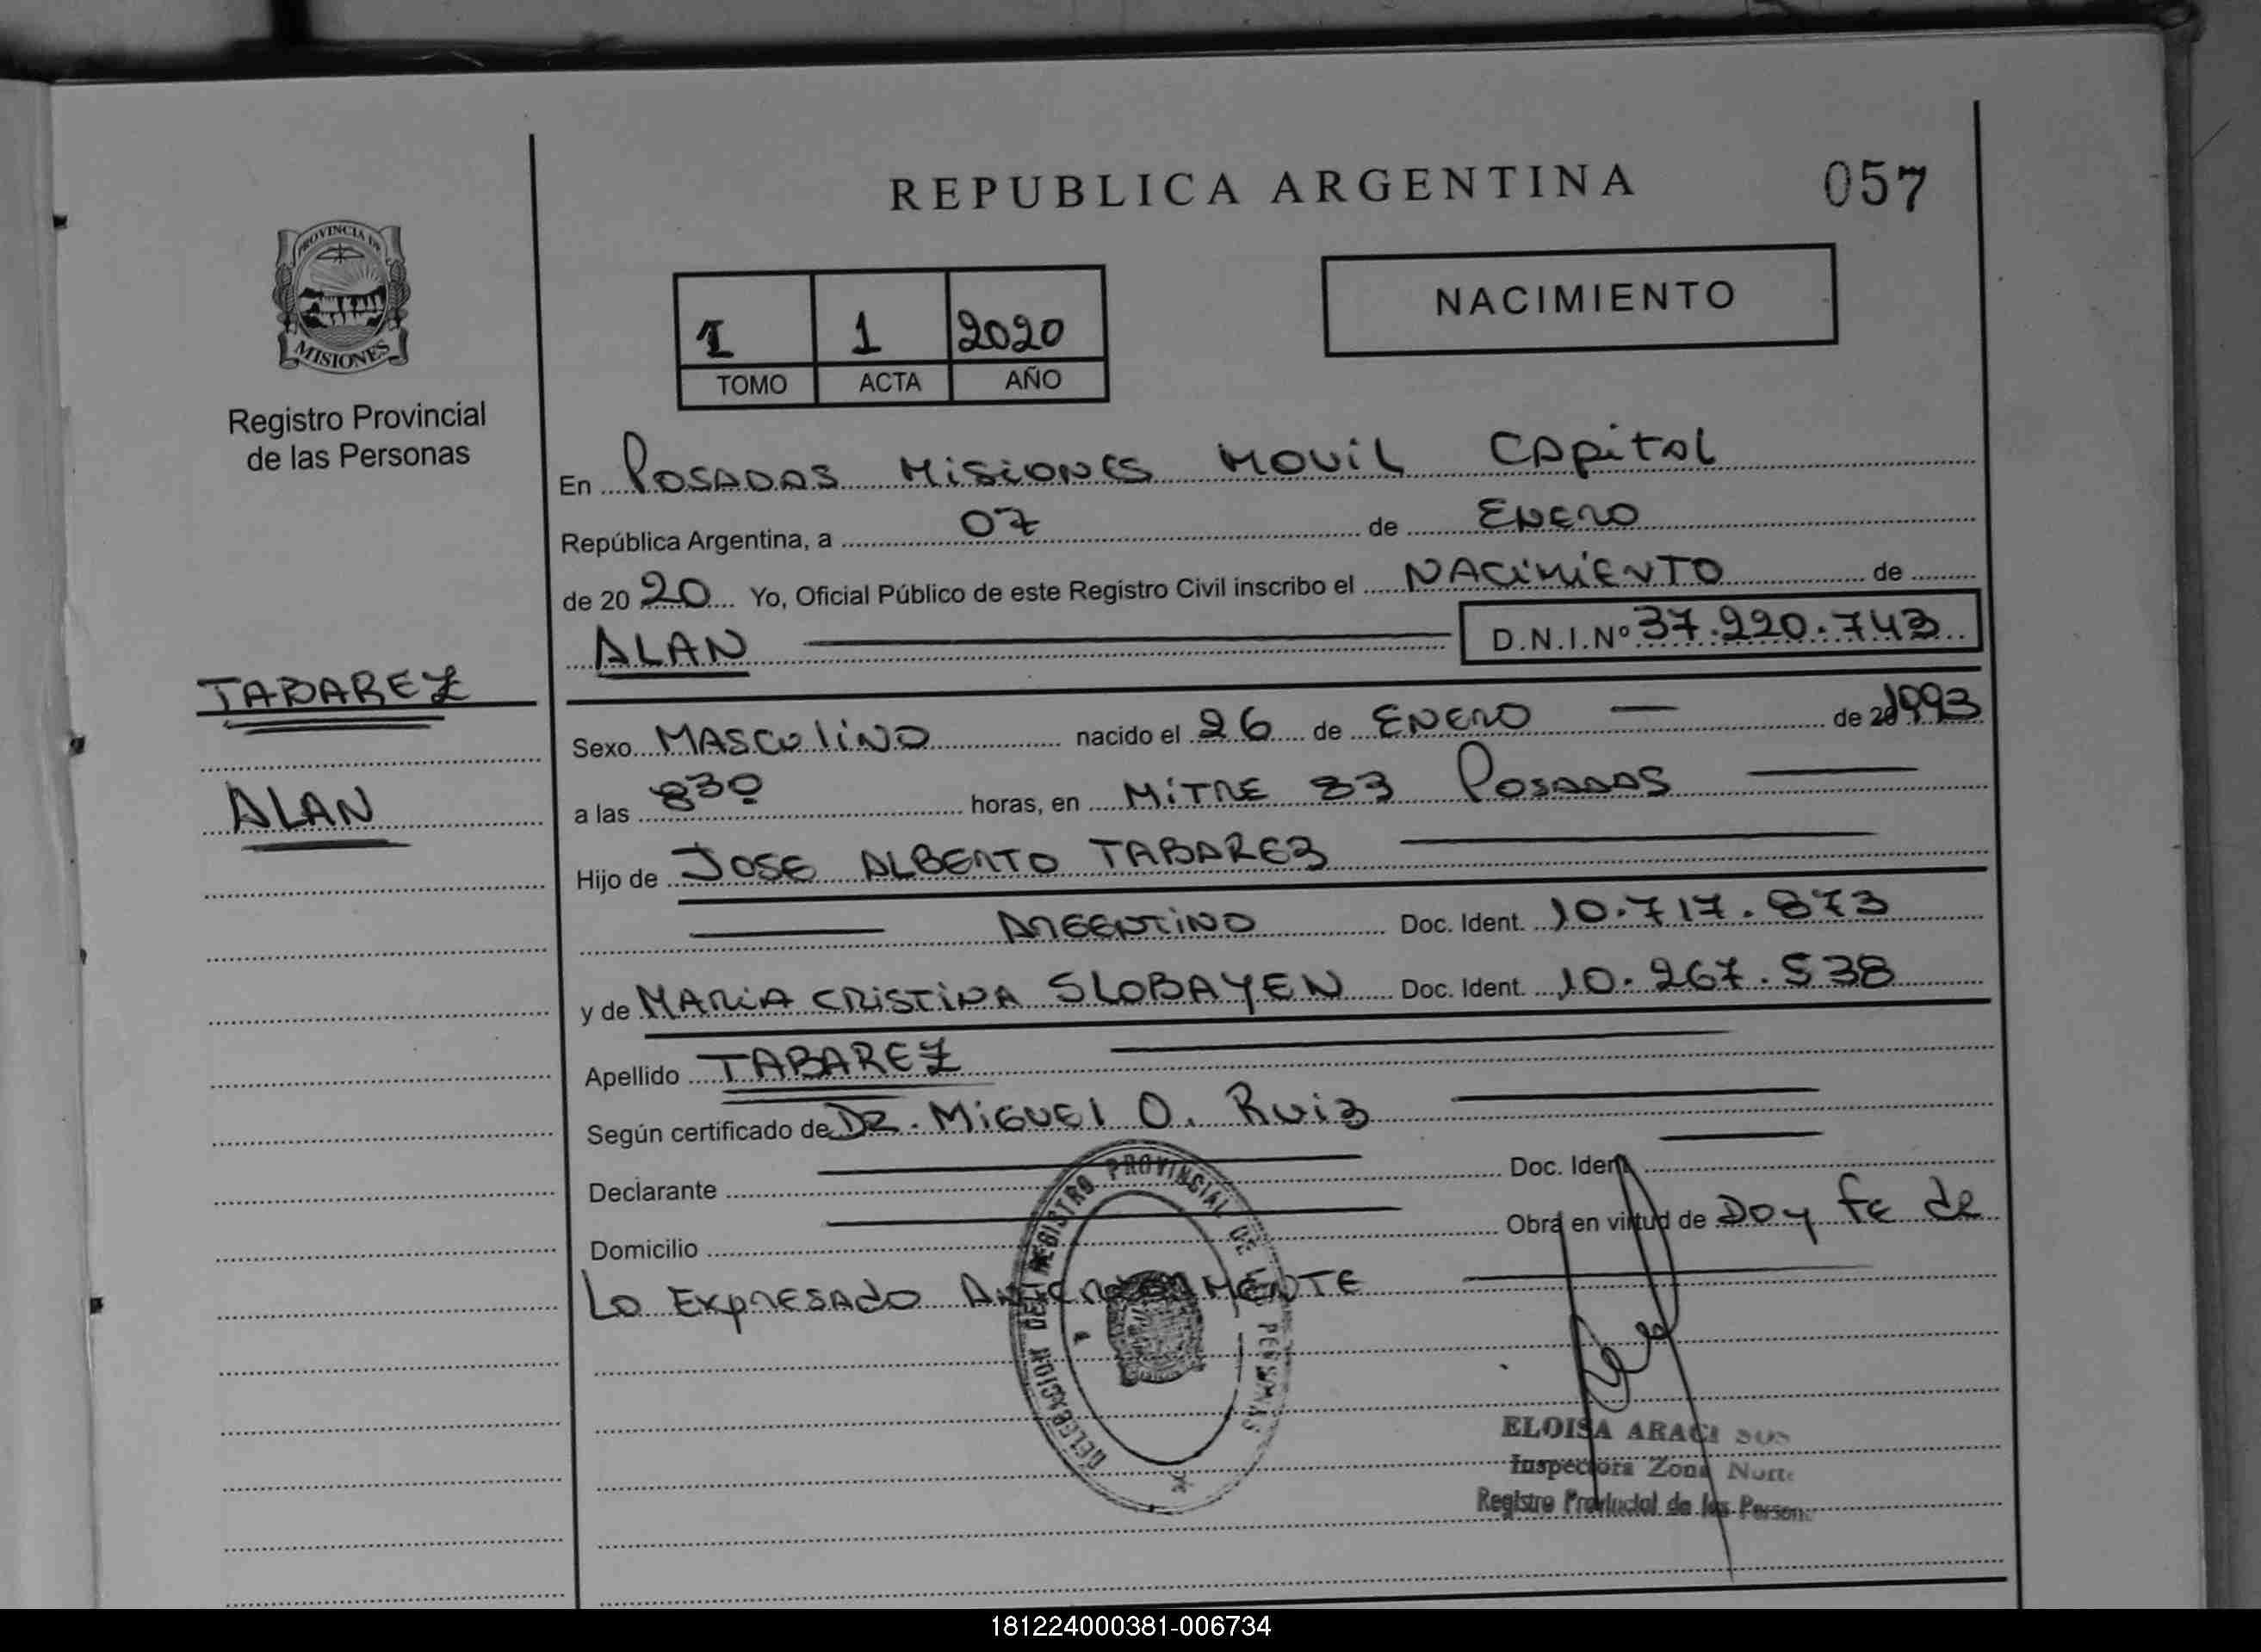 REPUBLICA ARGENTINA
057
PROVINCIA DE
MISIONES
Registro Provincial
de las Personas
NACIMIENTO
1 1 2020
TOMO ACTA AÑO
En POSADAS MISIONES MOVIL CAPITAL
República Argentina, a 07 de ENERO
de 20 20 Yo, Oficial Público de este Registro Civil inscribo el NACIMIENTO de
ALAN D.N.I.Nº 37.220.743
TABAREZ
ALAN
Sexo MASCULINO nacido el 26 de ENERO de 20 1993
a las 830 horas, en MITRE 83 POSADAS
Hijo de JOSE ALBERTO TABAREZ
ARGENTINO Doc. Ident. 10.717.873
y de MARIA CRISTINA SLOBAYEN Doc. Ident. 10.267.538
Apellido TABAREZ
Según certificado de DR. MIGUEL O. RUIZ
Declarante Doc. Ident.
Domicilio Obra en virtud de DOY FE de
LO EXPRESADO ANTERIORMENTE
DELEGACION DEL REGISTRO PROVINCIAL DE LAS PERSONAS
ELOISA ARACI
Inspectora Zona Norte
Registro Provincial de las Person
181224000381-006734